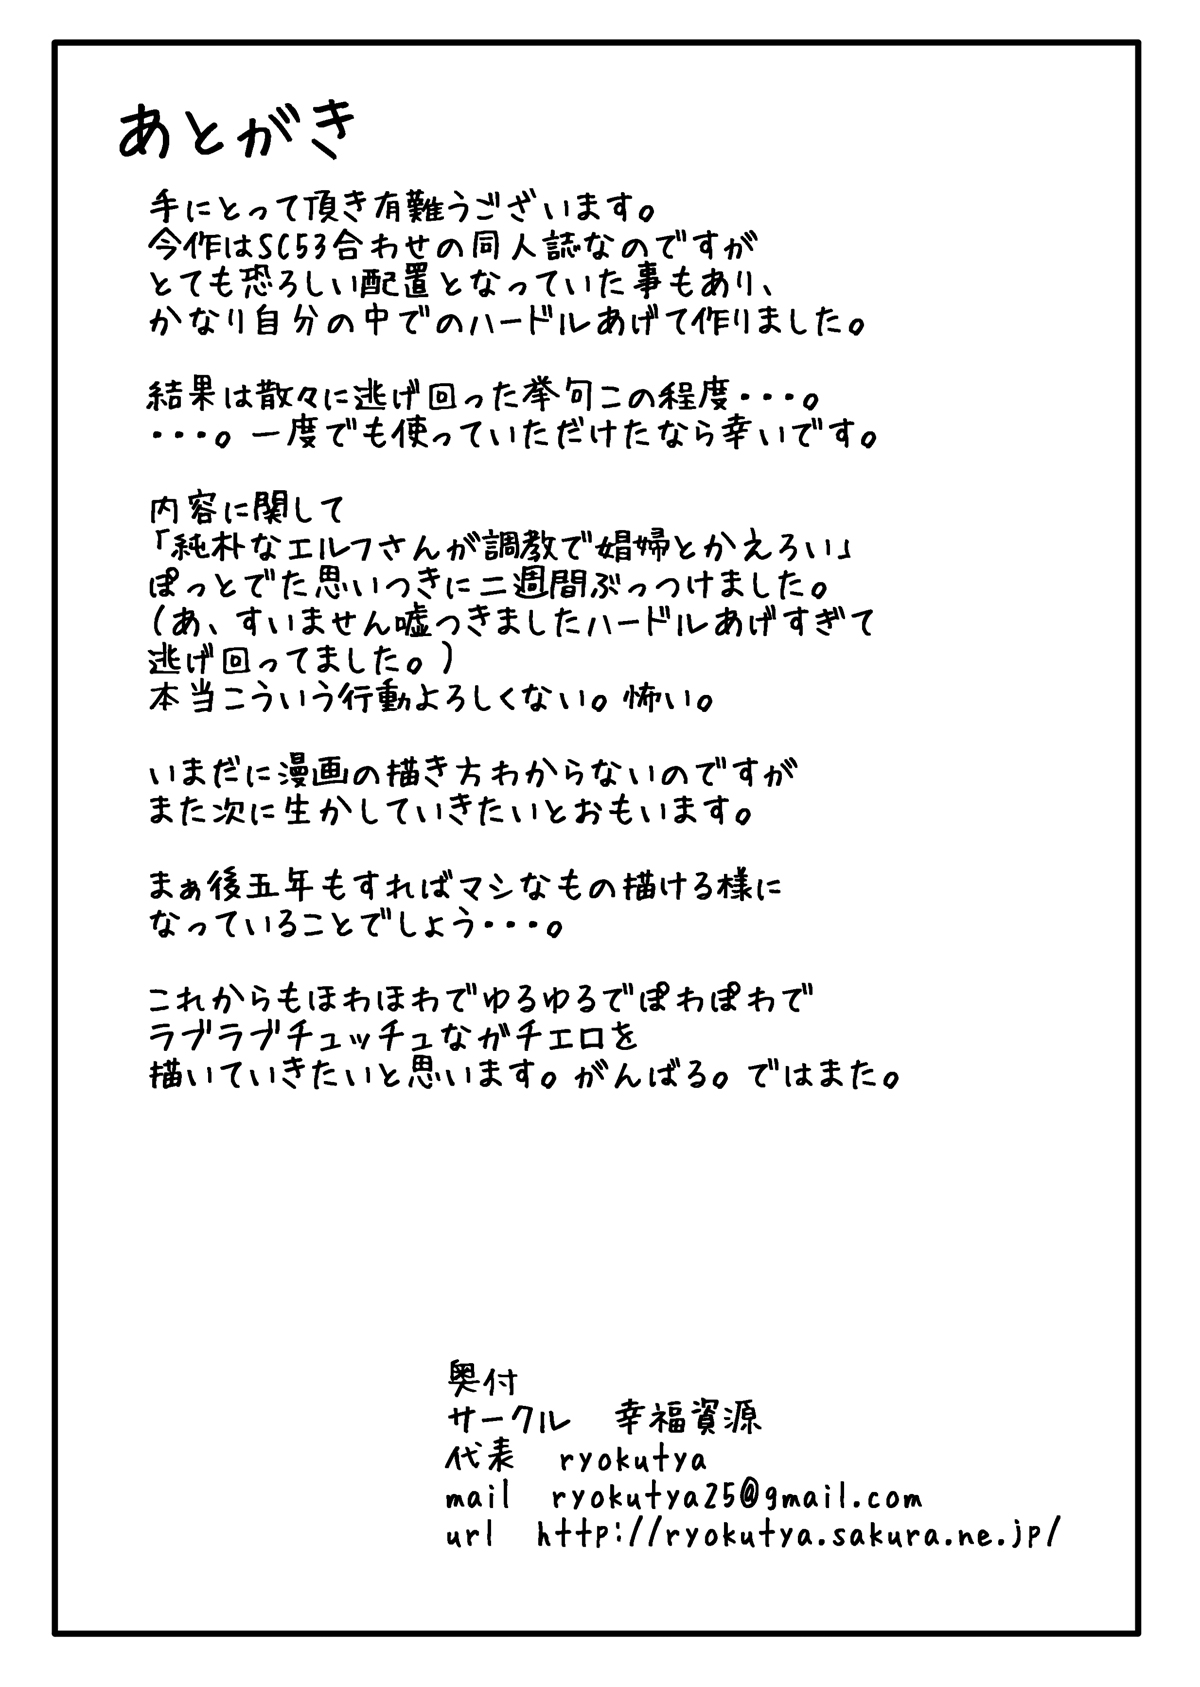 あとがき
手にとって頂き有難うございます。
今作はSC53合わせの同人誌なのですが
とても恐ろしい配置となっていた事もあり、
かなり自分の中でのハードルあげて作りました。
結果は散々に逃げ回った挙句この程度・・・。
・・・。一度でも使っていただけたなら幸いです。
内容に関して
「純朴なエルフさんが調教で娼婦とかえろい」
ぽっとでた思いつきに二週間ぶっつけました。
(あ、すいません嘘つきましたハードルあげすぎて
逃げ回ってました。)
本当こういう行動よろしくない。怖い。
いまだに漫画の描き方わからないのですが
また次に生かしていきたいとおもいます。
まぁ後五年もすればマシなもの描ける様に
なっていることでしょう・・・。
これからもほわほわでゆるゆるでぽわぽわで
ラブラブチュッチュなガチエロを
描いていきたいと思います。がんばる。ではまた。
奥付
サークル　幸福資源
代表　ryokutya
mail　ryokutya25@gmail.com
url　http://ryokutya.sakura.ne.jp/